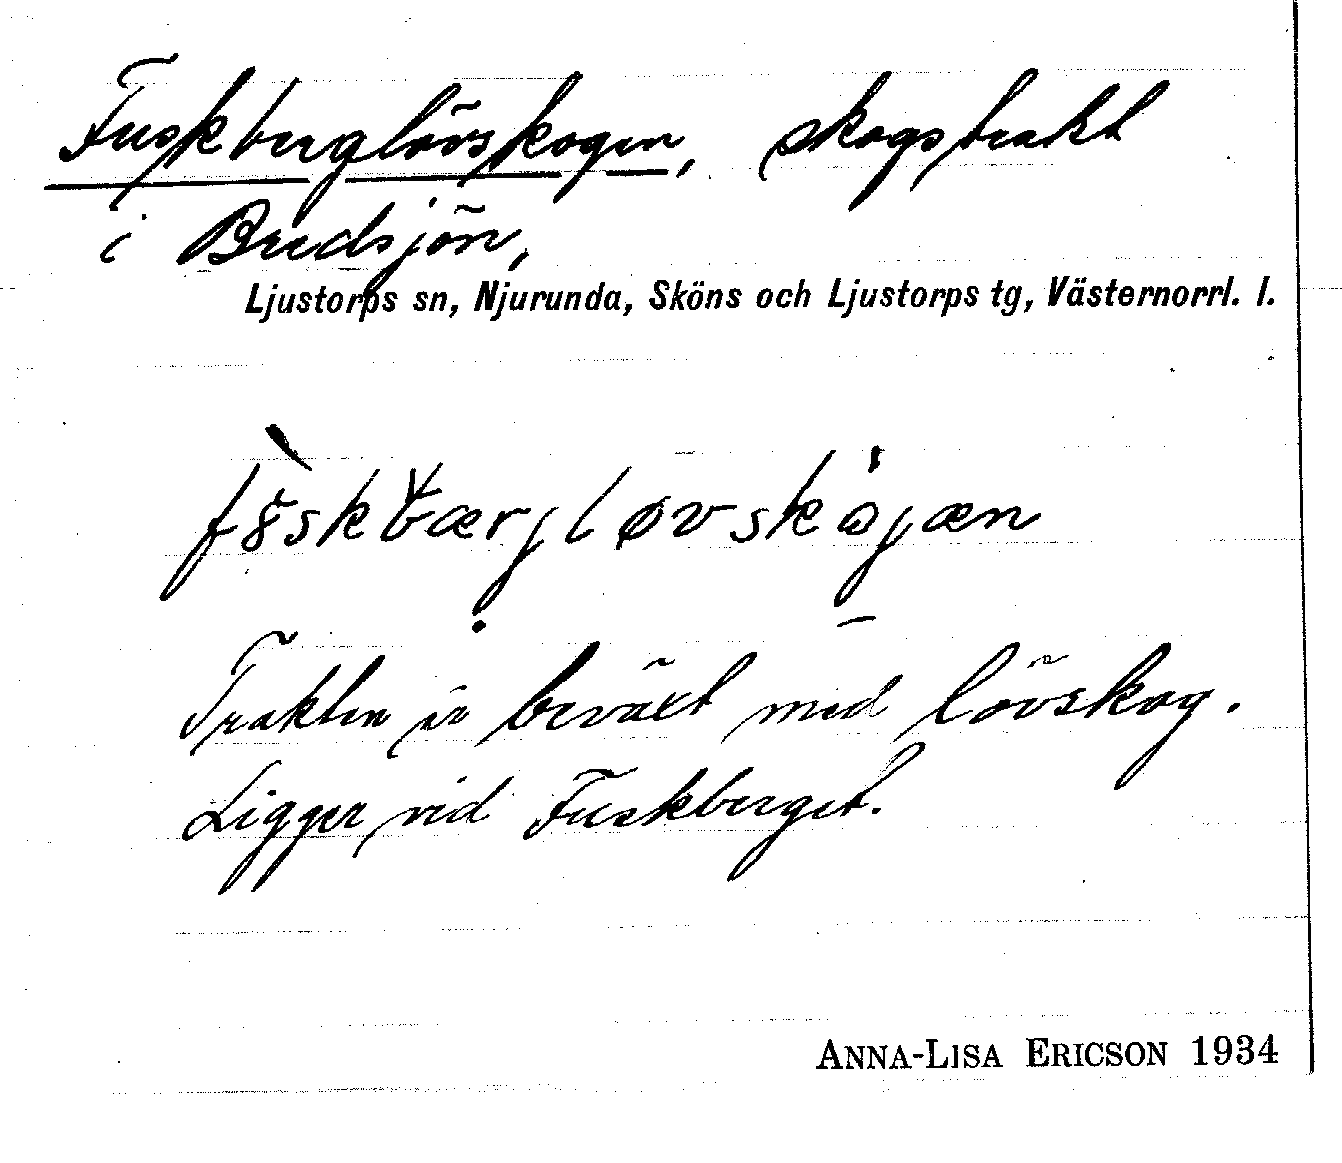 Fuskberglövskogen, skogstrakt
i Bredsjön,
Ljustorps sn, Njurunda, Sköns och Ljustorps tg, Västernorrl. l.
Trakten är beväxt med lövskog.
Ligger vid Fuskberget.
ANNA-LISA ERICSON 1934